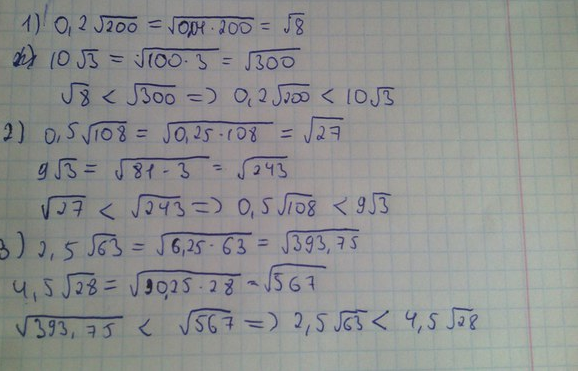 1) 0,2√200 = √0,04·200 = √8
10√3 = √100·3 = √300
√8 < √300 => 0,2√200 < 10√3
2) 0,5√108 = √0,25·108 = √27
9√3 = √81·3 = √243
√27 < √243 => 0,5√108 < 9√3
3) 2,5√63 = √6,25·63 = √393,75
4,5√28 = √20,25·28 = √567
√393,75 < √567 => 2,5√63 < 4,5√28